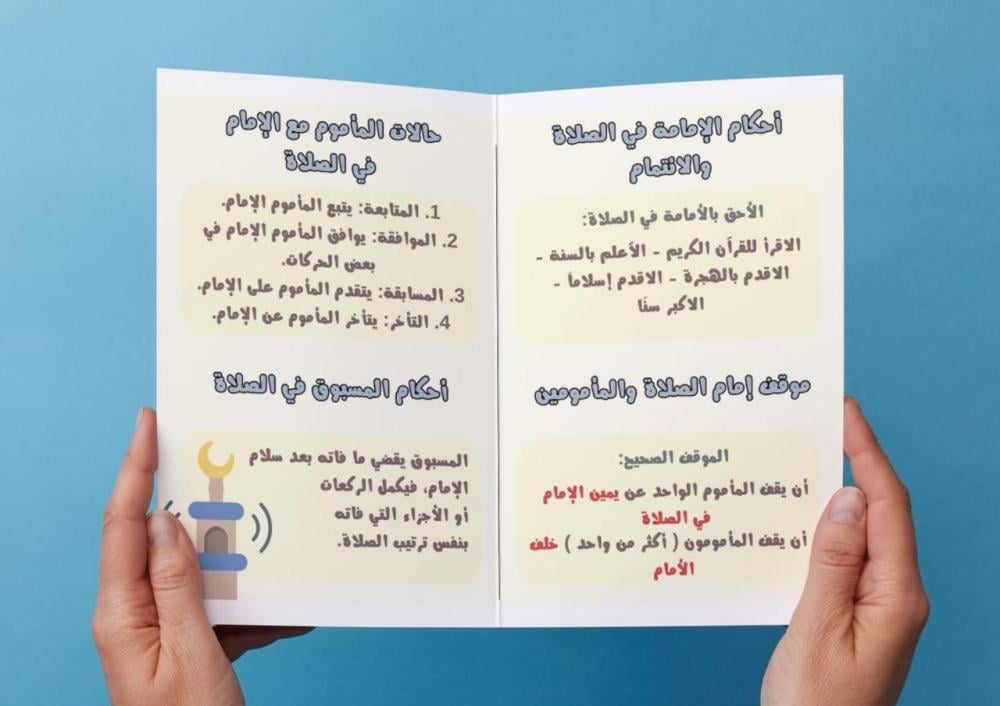 أحكام الإمامة في الصلاة
والائتمام
الأحق بالأمامة في الصلاة:
الاقرأ للقرآن الكريم - الأعلم بالسنة -
الاقدم بالهجرة - الاقدم إسلاماً -
الاكبر سنًا
موقف إمام الصلاة والمأمومين
الموقف الصحيح:
أن يقف المأموم الواحد عن يمين الإمام
في الصلاة
أن يقف المأمومون ( أكثر من واحد ) خلف
الأمام
حالات المأموم مع الإمام
في الصلاة
1. المتابعة: يتبع المأموم الإمام.
2. الموافقة: يوافق المأموم الإمام في
بعض الحركات.
3. المسابقة: يتقدم المأموم على الإمام.
4. التأخر: يتأخر المأموم عن الإمام.
أحكام المسبوق في الصلاة
المسبوق يقضي ما فاته بعد سلام
الإمام، فيكمل الركعات
أو الأجزاء التي فاته
بنفس ترتيب الصلاة.